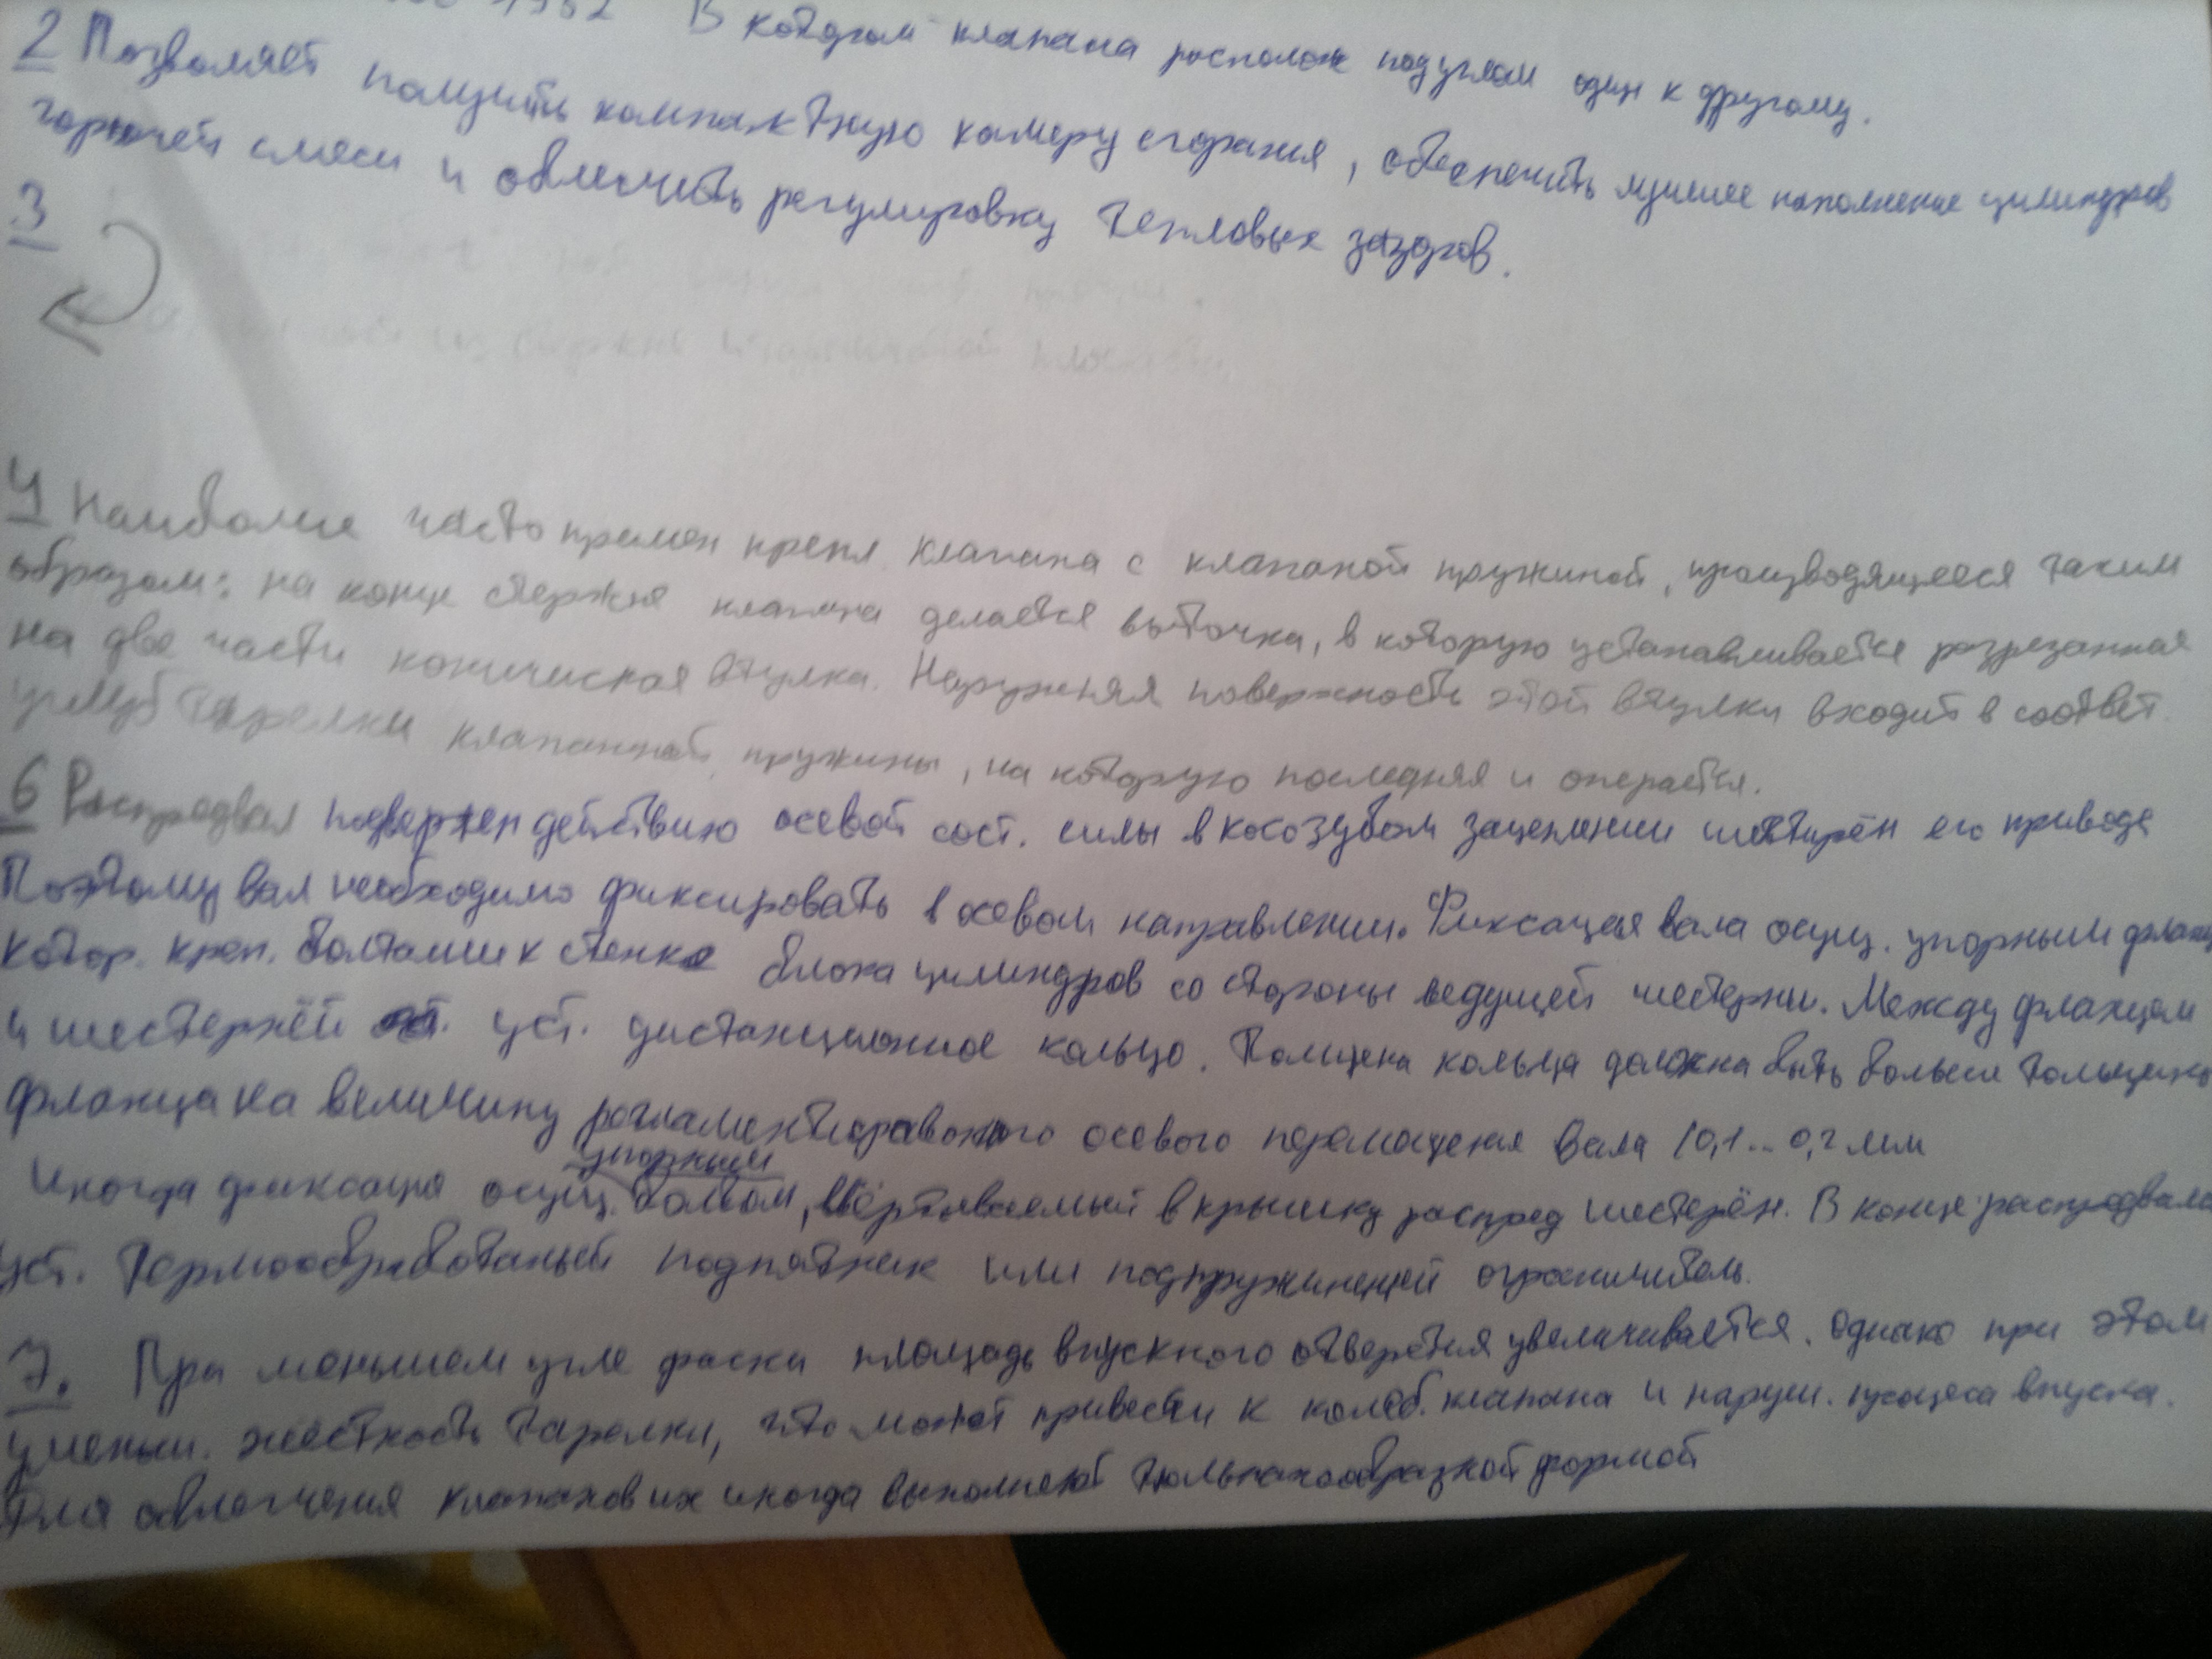 В котором клапана располож под углом один к другому.
2 Позволяет получить компактную камеру сгорания, обеспечить лучшее наполнение цилиндров
горючей смеси и облегчить регулировку тепловых зазоров.
3
4 Наиболее часто примен крепл клапана с клапаной пружиной, производящееся таким
образом: на конце стержня клапана делается выточка, в которую устанавливается разрезанная
на две части коническая втулка. Наружняя поверхность этой втулки входит в соответ.
углуб тарелки клапанной пружины, на которую последняя и опирается.
6 Распредвал подвержен действию осевой сост. силы в косозубом зацеплении шестирён его привода
Поэтому вал необходимо фиксировать в осевом направлении. Фиксация вала осущ. упорным фланц
котор. креп. болтами к стенке блока цилиндров со стороны ведущей шестерни. Между фланцем
и шестернёй уст. дистанционное кольцо. Толщена кольца должна быть больше толщины
фланца на величину осевого перемещения вала (0,1... 0,2 мм
упорным
Иногда фиксация осущ. болтом, ввёртываемый в крышку распред шестерён. В конце распредвала
уст. Термообработаный подпятник или подпружинецый ограничитель.
7. При меньшем угле фаски площадь впускного отверстия увеличивается. Однако при этом
уменьш. жёсткость тарелки, что может привести к колеб. клапана и наруш. процеса впуска.
Для облегчения клапанов их иногда выполняют тюльпанообразной формой